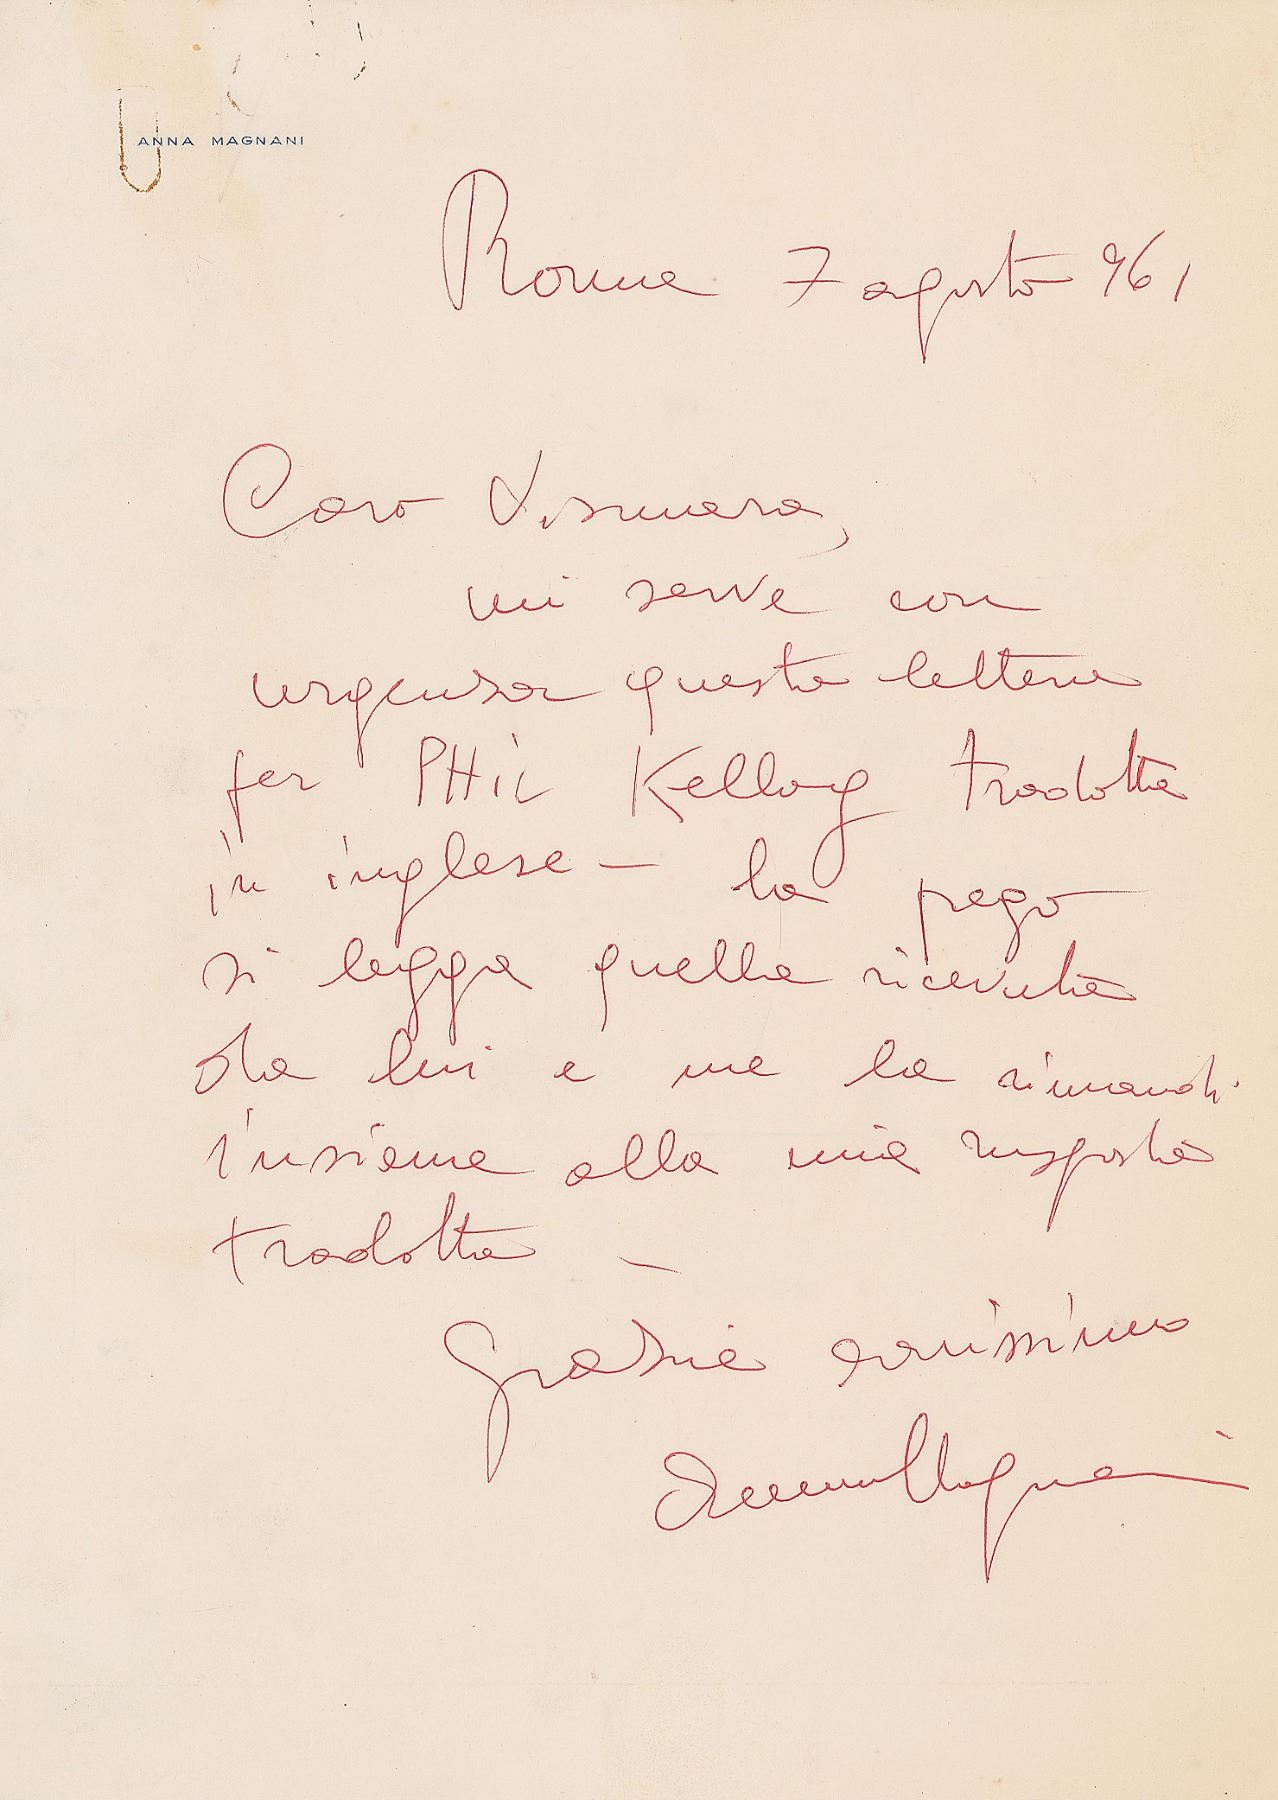 ANNA MAGNANI
Roma 7 agosto 961
Caro Vismara,
mi serve con
urgenza questa lettera
per PHiL Kellog tradotta
in inglese – La prego
si legga quella ricevuta
da lui e me la rimandi
insieme alla mia risposta
tradotta –
Grazie carissimo
Anna Magnani